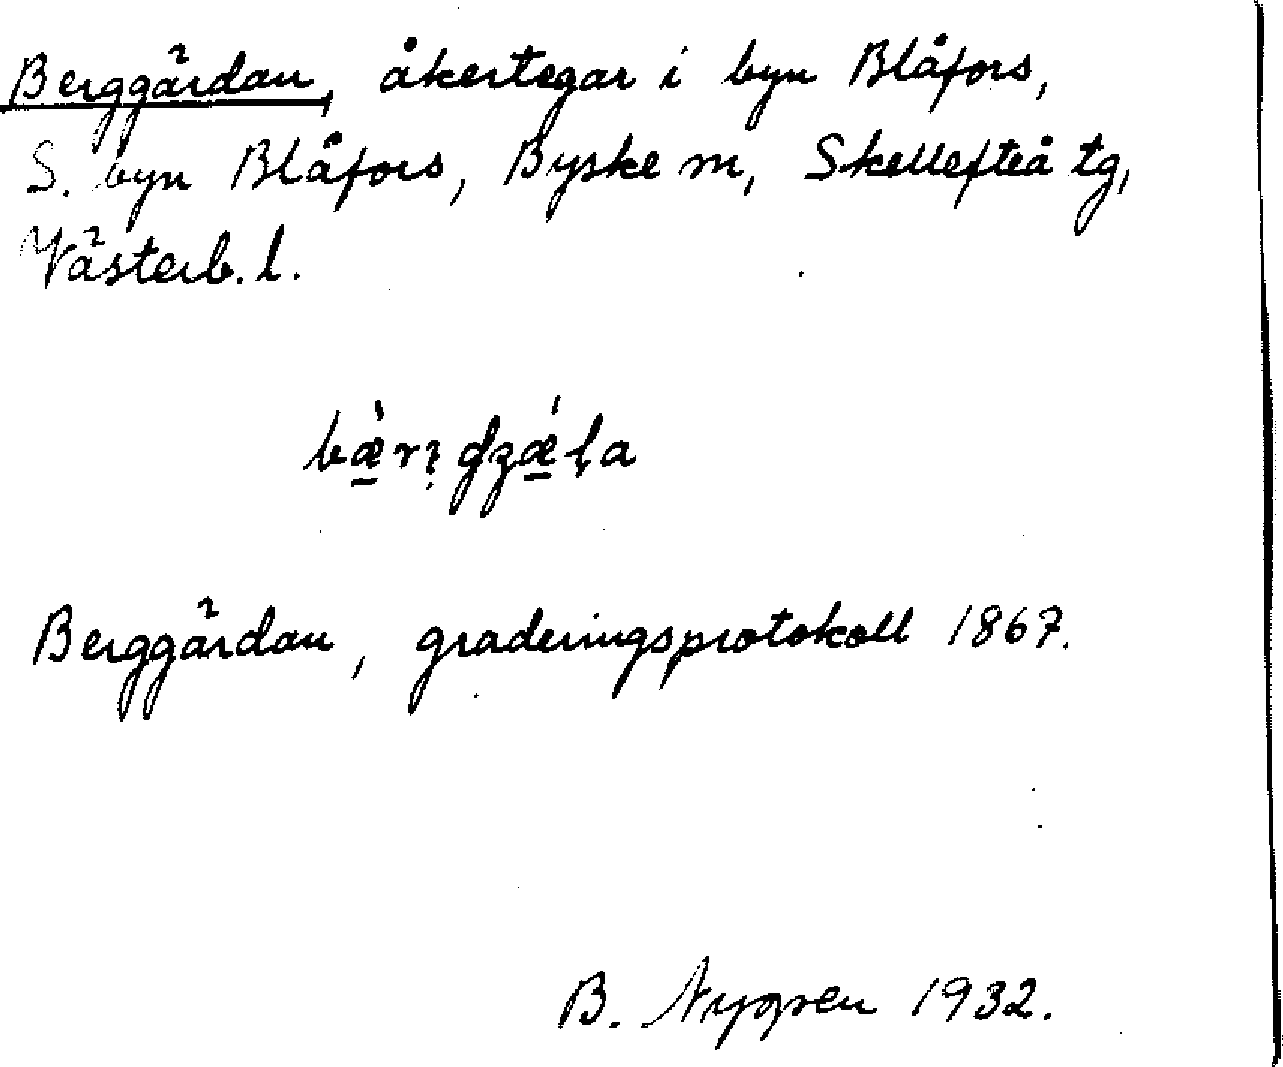 Berggärdan, åkertegar i byn Blåfors,
S. byn Blåfors, Byske sn, Skellefteå tg,
Västerb. l.
Berggärdan, graderingsprotokoll 1867.
B. Nygren 1932.